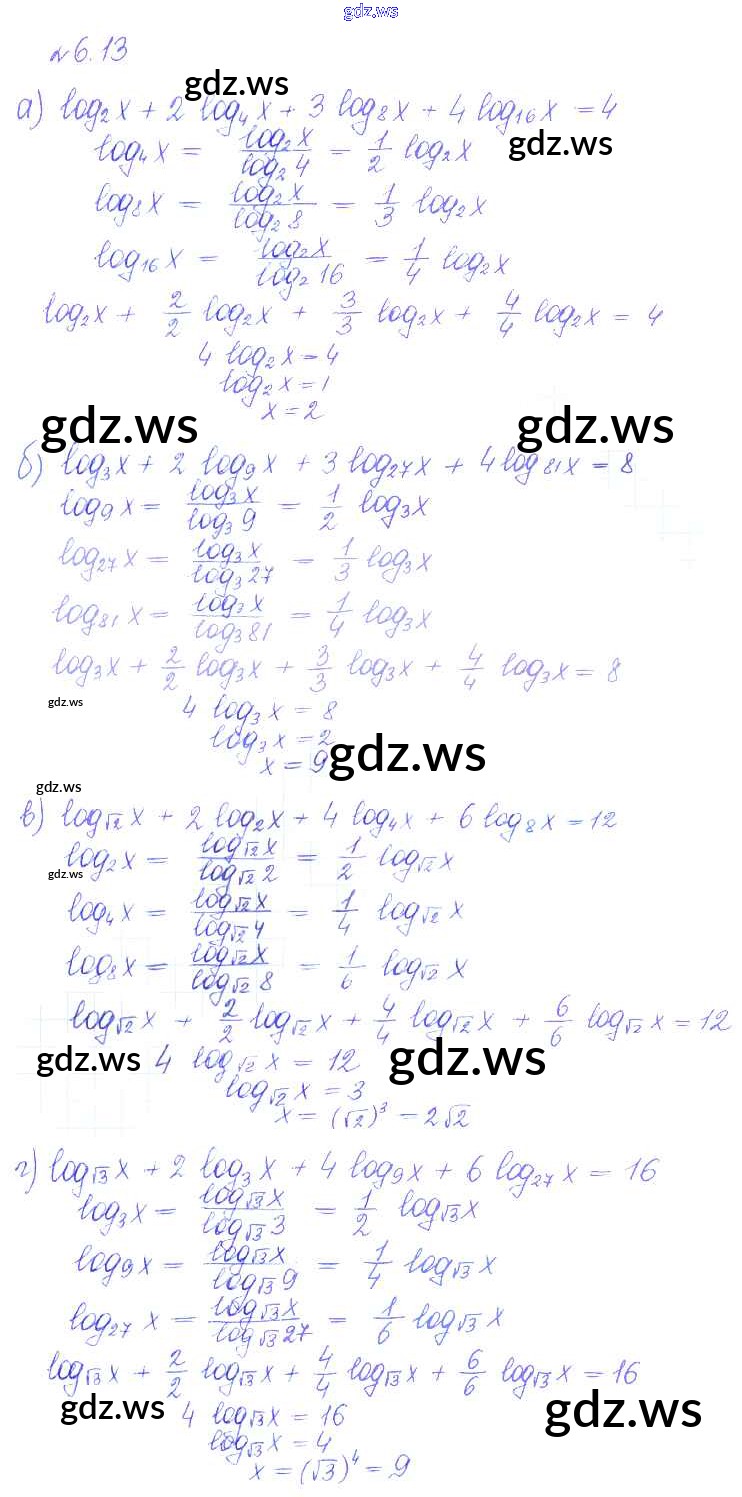 gdz.ws
№6.13
gdz.ws
а) log₂x + 2 log₄x + 3 log₈x + 4 log₁₆x = 4
gdz.ws
log₄x = log₂x / log₂4 = 1/2 log₂x
log₈x = log₂x / log₂8 = 1/3 log₂x
log₁₆x = log₂x / log₂16 = 1/4 log₂x
log₂x + 2/2 log₂x + 3/3 log₂x + 4/4 log₂x = 4
4 log₂x = 4
log₂x = 1
x = 2
gdz.ws gdz.ws
б) log₃x + 2 log₉x + 3 log₂₇x + 4 log₈₁x = 8
log₉x = log₃x / log₃9 = 1/2 log₃x
log₂₇x = log₃x / log₃27 = 1/3 log₃x
log₈₁x = log₃x / log₃81 = 1/4 log₃x
log₃x + 2/2 log₃x + 3/3 log₃x + 4/4 log₃x = 8
gdz.ws
4 log₃x = 8
log₃x = 2
gdz.ws
x = 9
gdz.ws
в) log√2 x + 2 log₂x + 4 log₄x + 6 log₈x = 12
log₂x = log√2 x / log√2 2 = 1/2 log√2 x
gdz.ws
log₄x = log√2 x / log√2 4 = 1/4 log√2 x
log₈x = log√2 x / log√2 8 = 1/6 log√2 x
log√2 x + 2/2 log√2 x + 4/4 log√2 x + 6/6 log√2 x = 12
gdz.ws gdz.ws
4 log√2 x = 12
log√2 x = 3
x = (√2)³ = 2√2
г) log√3 x + 2 log₃x + 4 log₉x + 6 log₂₇x = 16
log₃x = log√3 x / log√3 3 = 1/2 log√3 x
log₉x = log√3 x / log√3 9 = 1/4 log√3 x
log₂₇x = log√3 x / log√3 27 = 1/6 log√3 x
log√3 x + 2/2 log√3 x + 4/4 log√3 x + 6/6 log√3 x = 16
gdz.ws gdz.ws
4 log√3 x = 16
log√3 x = 4
x = (√3)⁴ = 9